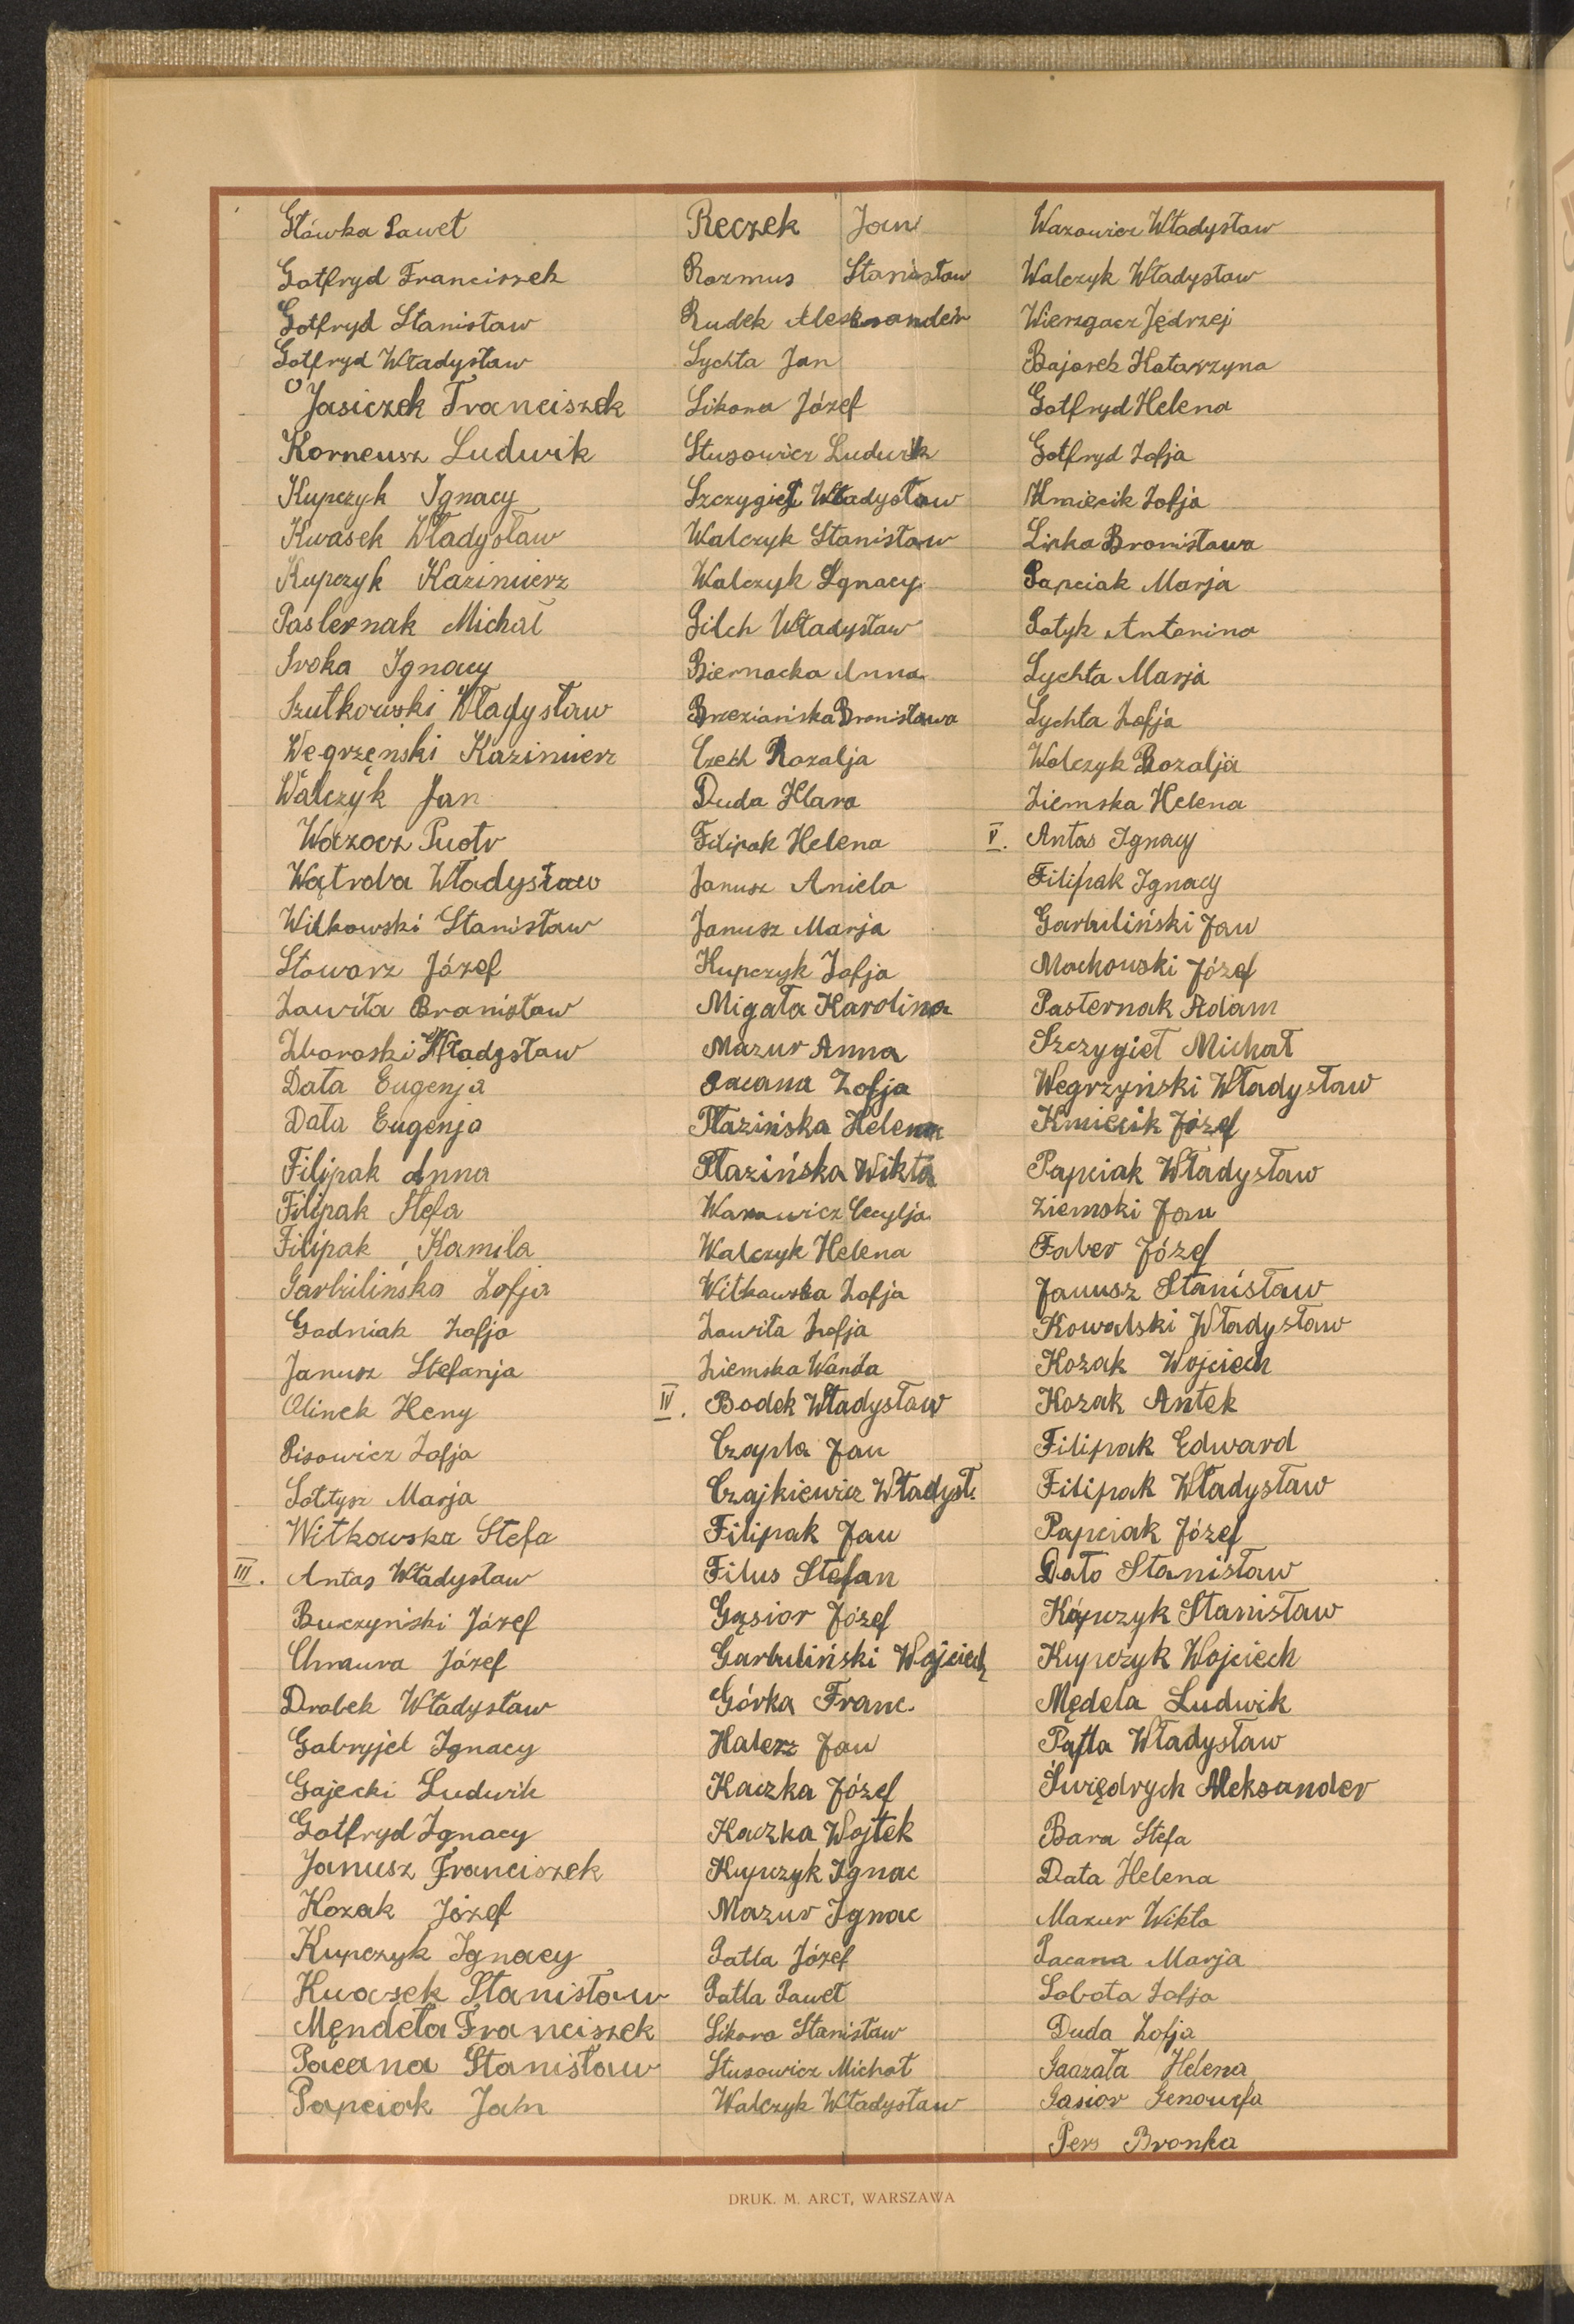 Główka Paweł
Gotfryd Franciszek
Gotfryd Stanisław
Gotfryd Władysław
Jasiczek Franciszek
Korneusz Ludwik
Kupczyk Ignacy
Kwasek Władysław
Kupczyk Kazimierz
Pasternak Michał
Sroka Ignacy
Szutkowski Władysław
Węgrzeński Kazimierz
Walczyk Jan
Piotr
Wątroba Władysław
Witkowski Stanisław
Stowarz Józef
Zawiła Bronisław
Zboroski Władysław
Data Eugenja
Data Eugenja
Filipak Anna
Filipak Stefa
Filipak Kamila
Garbulińska Zofja
Godniak Zofja
Janusz Stefanja
Olinek Heny
Pisowicz Zofja
Sołtysz Marja
Witkowska Stefa
III. Antas Władysław
Buczyński Józef
Chmura Józef
Drobek Władysław
Gabryjel Ignacy
Gajecki Ludwik
Gotfryd Ignacy
Janusz Franciszek
Kozak Józef
Kupczyk Ignacy
Kwasek Stanisław
Mendela Franciszek
Pacana Stanisław
Papciak Jan
Reczek Jan
Rozmus Stanisław
Rudek Aleksander
Sychta Jan
Sikora Józef
Stusowicz Ludwik
Szczygieł Władysław
Walczyk Stanisław
Walczyk Ignacy
Pilch Władysław
Biernacka Anna
Brzeziańska Bronisława
Czech Rozalja
Duda Klara
Filipak Helena
Janusz Aniela
Janusz Marja
Kupczyk Zofja
Migała Karolina
Mazur Anna
Pacana Zofja
Płazińska Helena
Płazińska Wikta
Warowicz Cecylja
Walczyk Helena
Witkowska Zofja
Zawiła Zofja
Ziemska Wanda
IV. Bodek Władysław
Czapla Jan
Czajkiewicz Władysł.
Filipak Jan
Filus Stefan
Gąsior Józef
Garbuliński Wojciech
Górka Franc.
Halerz Jan
Kaczka Józef
Kaczka Wojtek
Kupczyk Ignac
Mazur Ignac
Patla Józef
Patla Paweł
Sikora Stanisław
Stusowicz Michał
Walczyk Władysław
Warowicz Władysław
Walczyk Władysław
Wierzgacz Jędrzej
Bajorek Katarzyna
Gotfryd Helena
Gotfryd Zofja
Kmiecik Zofja
Lipka Bronisława
Papciak Marja
Patyk Antonina
Sychta Marja
Sychta Zofja
Walczyk Rozalja
Ziemska Helena
V. Antas Ignacy
Filipak Ignacy
Garbuliński Jan
Machowski Józef
Pasternak Adam
Szczygieł Michał
Węgrzyński Władysław
Kmiecik Józef
Papciak Władysław
Ziemski Jan
Faber Józef
Janusz Stanisław
Kowalski Władysław
Kozak Wojciech
Kozak Antek
Filipak Edward
Filipak Władysław
Papciak Józef
Dato Stanisław
Kupczyk Stanisław
Kupczyk Wojciech
Mędela Ludwik
Patla Władysław
Świędrych Aleksander
Bara Stefa
Data Helena
Mazur Wikta
Pacana Marja
Sobota Zofja
Duda Zofja
Helena
Gąsior Genowefa
Pers Bronka
DRUK. M. ARCT, WARSZAWA